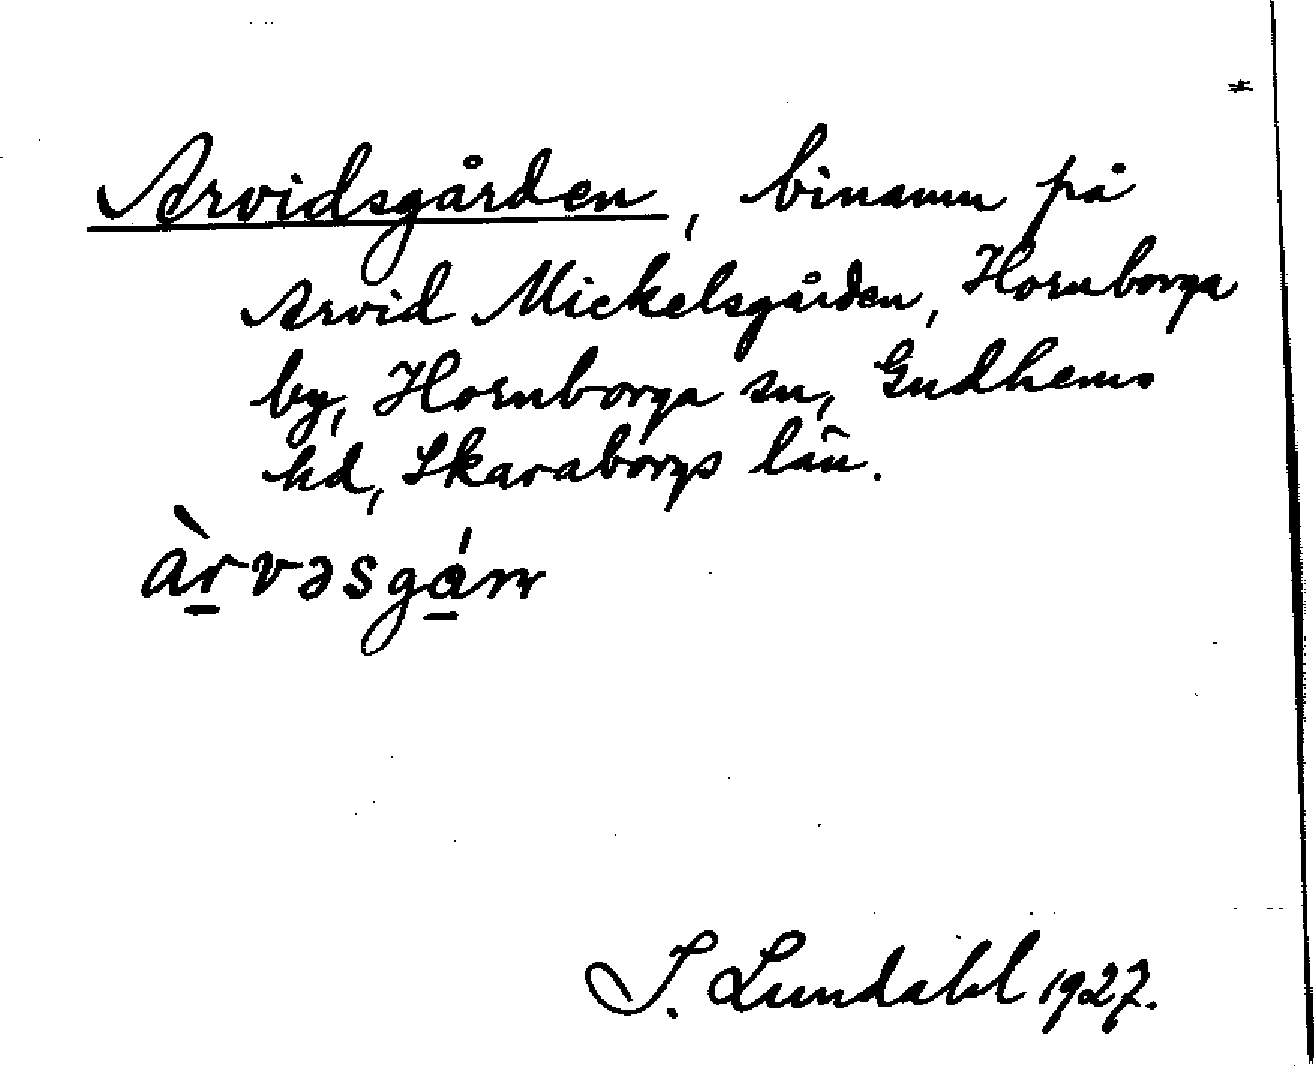 Arvidsgården, binamn på
Arvid Mickelsgården, Hornborga
by, Hornborga sn, Gudhems
hd, Skaraborgs län.
àrvəsgárn
I. Lundahl 1927.